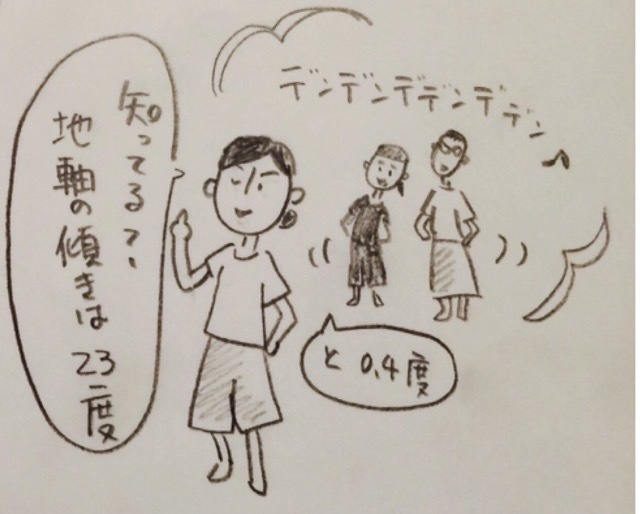 デンデンデデンデデン♪
知ってる~
地軸の傾きは23度
と0.4度